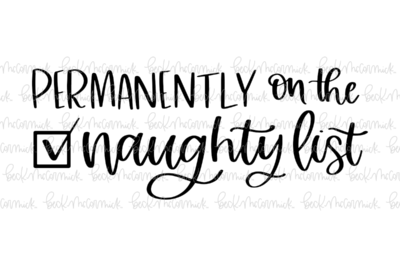 PERMANENTLY on the
naughty list